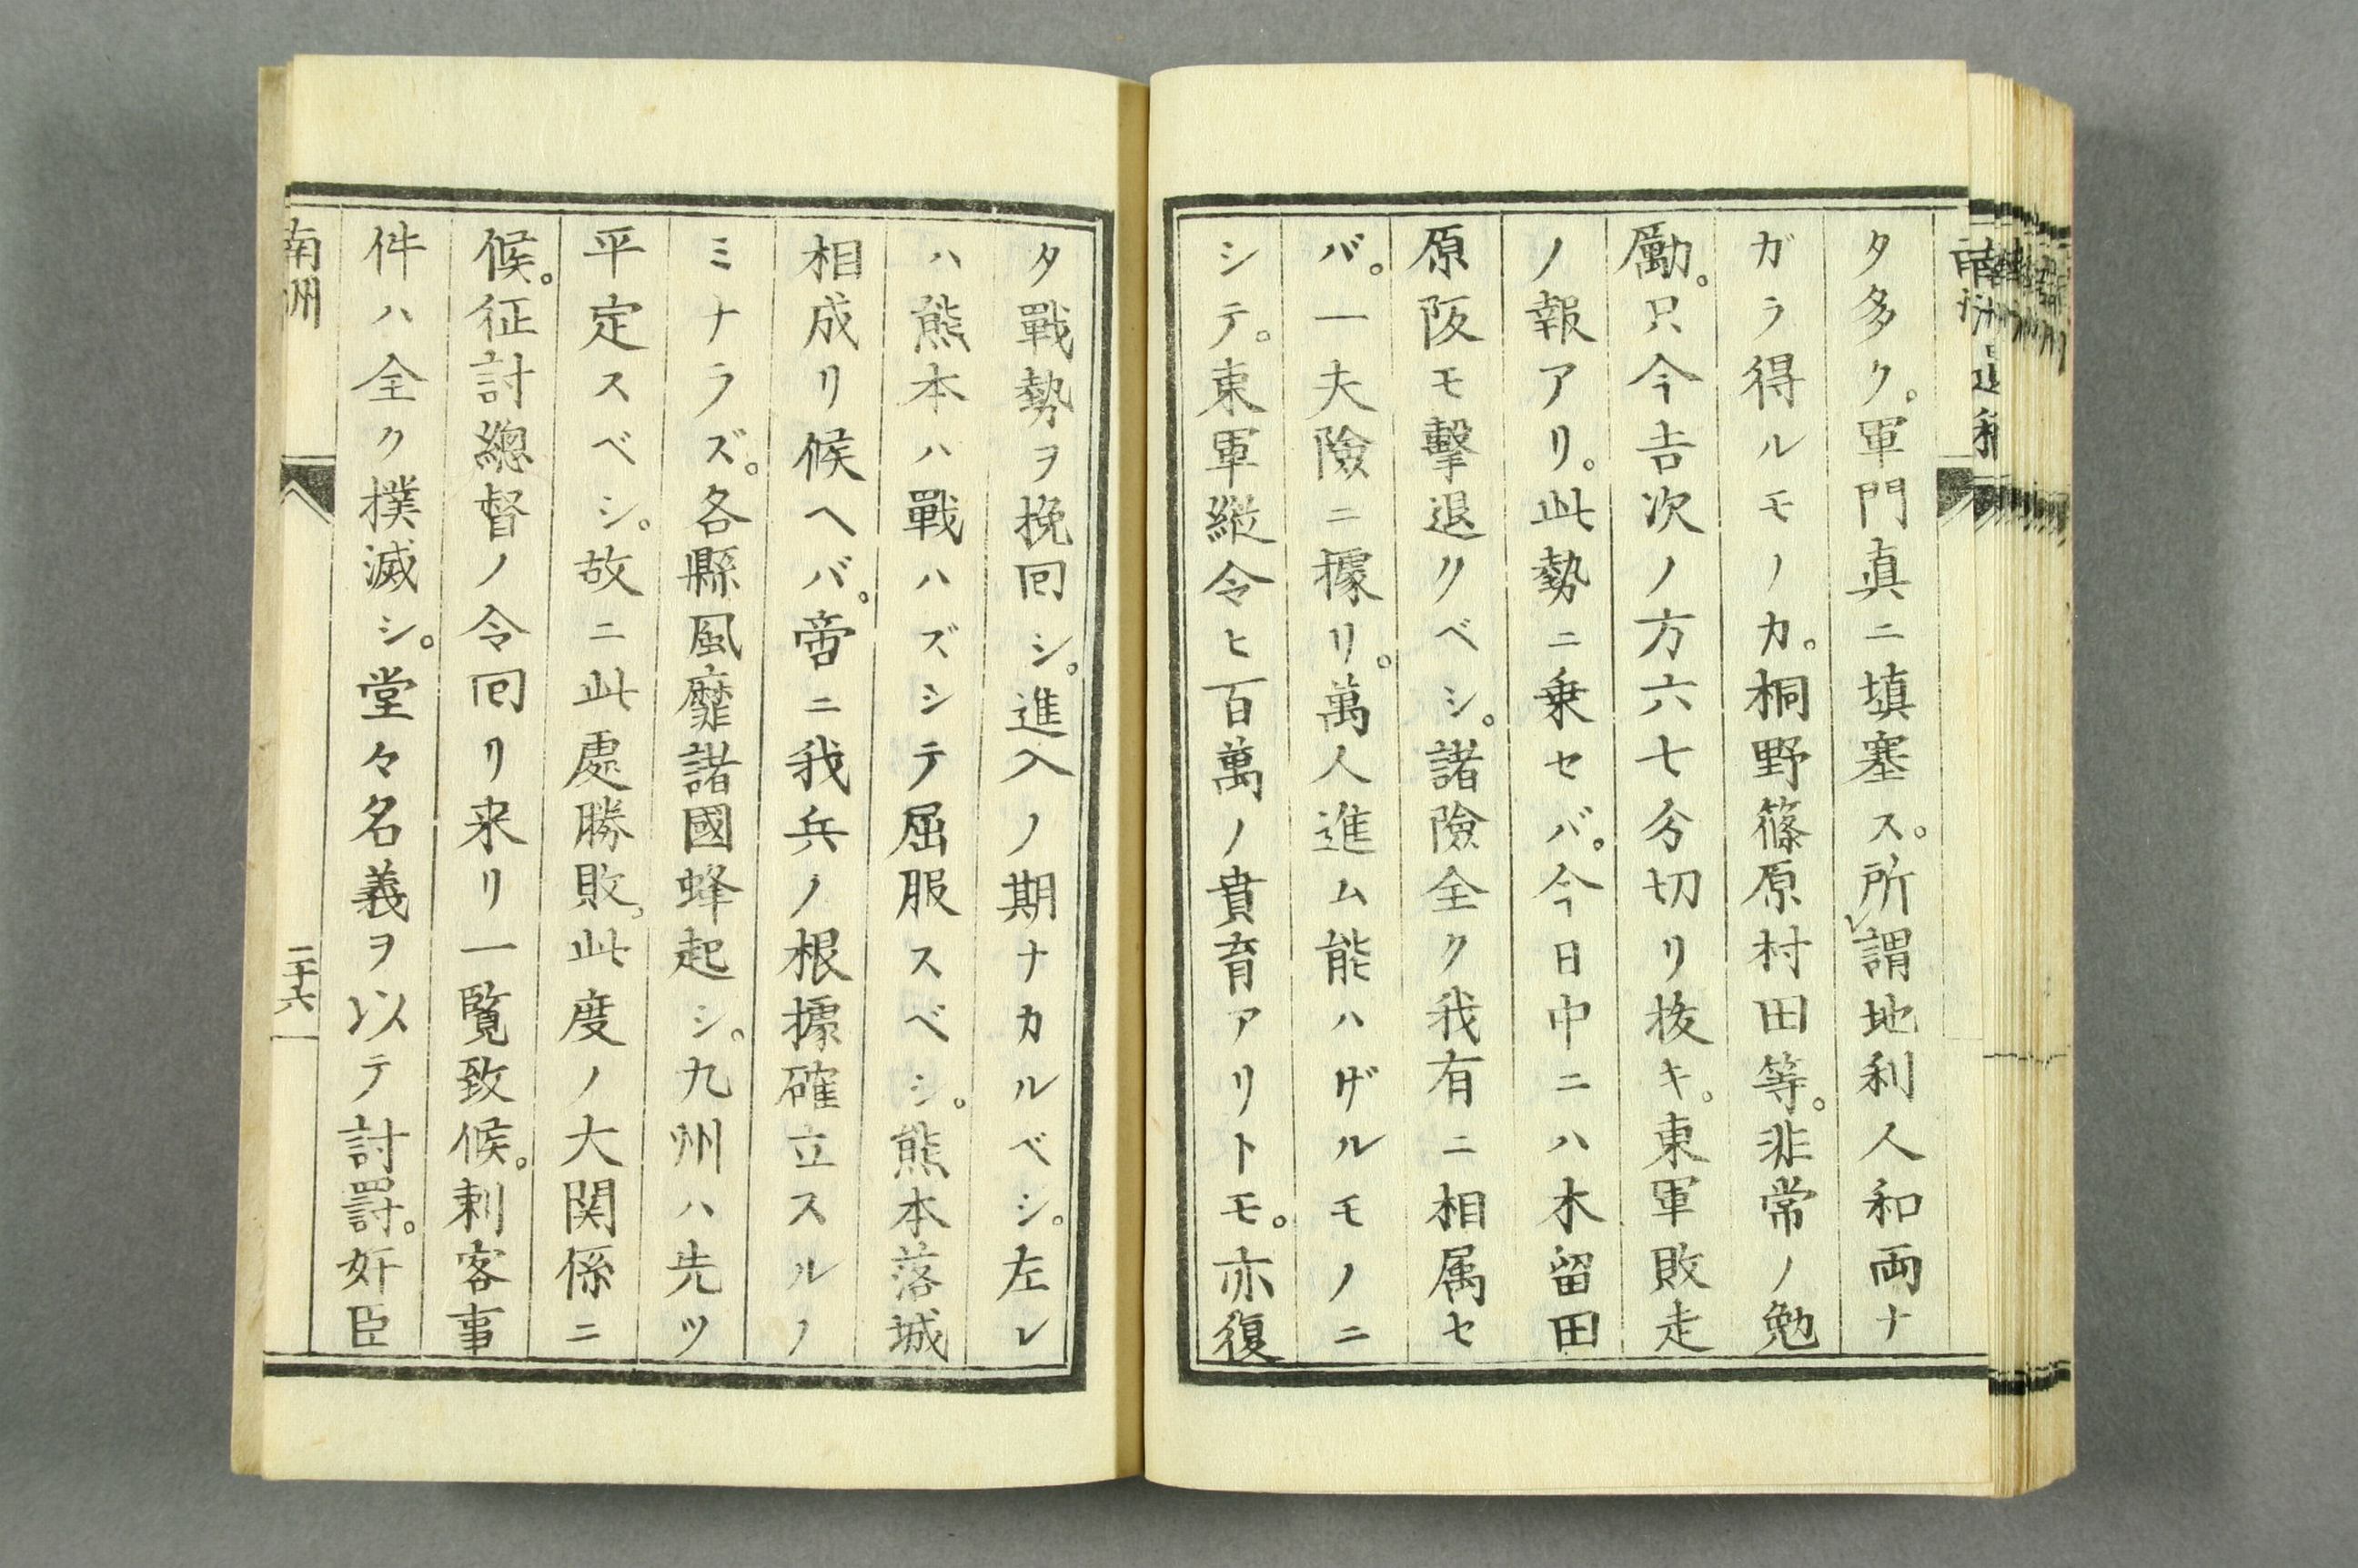 タ多ク。軍門真ニ填塞ス。所謂地利人和両ナ
ガラ得ルモノカ。桐野篠原村田等。非常ノ勉
勵。只今吉次ノ方六七分切リ抜キ。東軍敗走
ノ報アリ。此勢ニ乗セバ。今日中ニハ木留田
原阪モ擊退クベシ。諸險全ク我有ニ相属セ
バ。一夫險ニ據リ。萬人進ム能ハザルモノニ
シテ。東軍縦令ヒ百萬ノ賁育アリトモ。亦復
タ戰勢ヲ挽回シ。進入ノ期ナカルベシ。左レ
ハ熊本ハ戰ハズシテ屈服スベシ。熊本落城
相成リ候ヘバ。啻ニ我兵ノ根據確立スルノ
ミナラズ。各縣風靡諸國蜂起シ。九州ハ先ツ
平定スベシ。故ニ此處勝敗。此度ノ大関係ニ
候。征討總督ノ令回リ来リ一覧致候。刺客事
件ハ全ク撲滅シ。堂々名義ヲ以テ討罸。奸臣
南洲
二十六